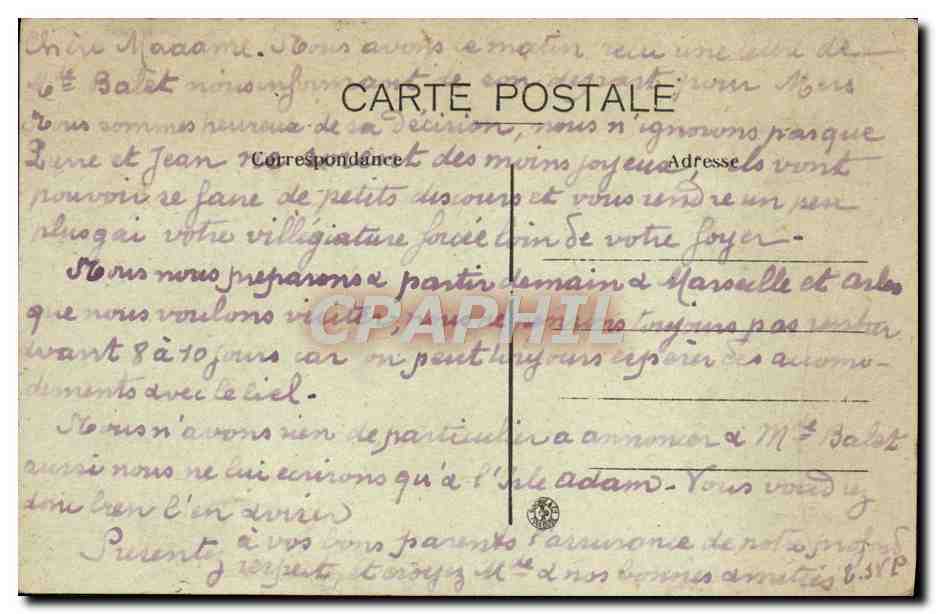 Chère Madame. Nous avons ce matin reçu une lettre de
Mme Balet nous informant de son départ pour Mers
CARTE POSTALE
Nous sommes heureux de sa décision, nous n'ignorons pas que
Pierre et Jean ne des moins joyeux, ils vont
Correspondance
Adresse
pouvoir se faire de petits discours et vous rendre un peu
plus gai votre villégiature forcée loin de votre foyer -
Nous nous préparons à partir demain à Marseille et Arles
que nous voulons visiter, nous toujours pas rentrer
CPAPHIL
avant 8 à 10 jours car on peut toujours espérer des accomo-
dements avec le ciel -
Nous n'avons rien de particulier a annoncer à Mme Balet
aussi nous ne lui ecrirons qu'à l'Isle Adam - Vous voudrez
donc bien l'en aviser
Presentez à vos bons parents l'assurance de notre profond
respect, et croyez Mme à nos bonnes amitiés